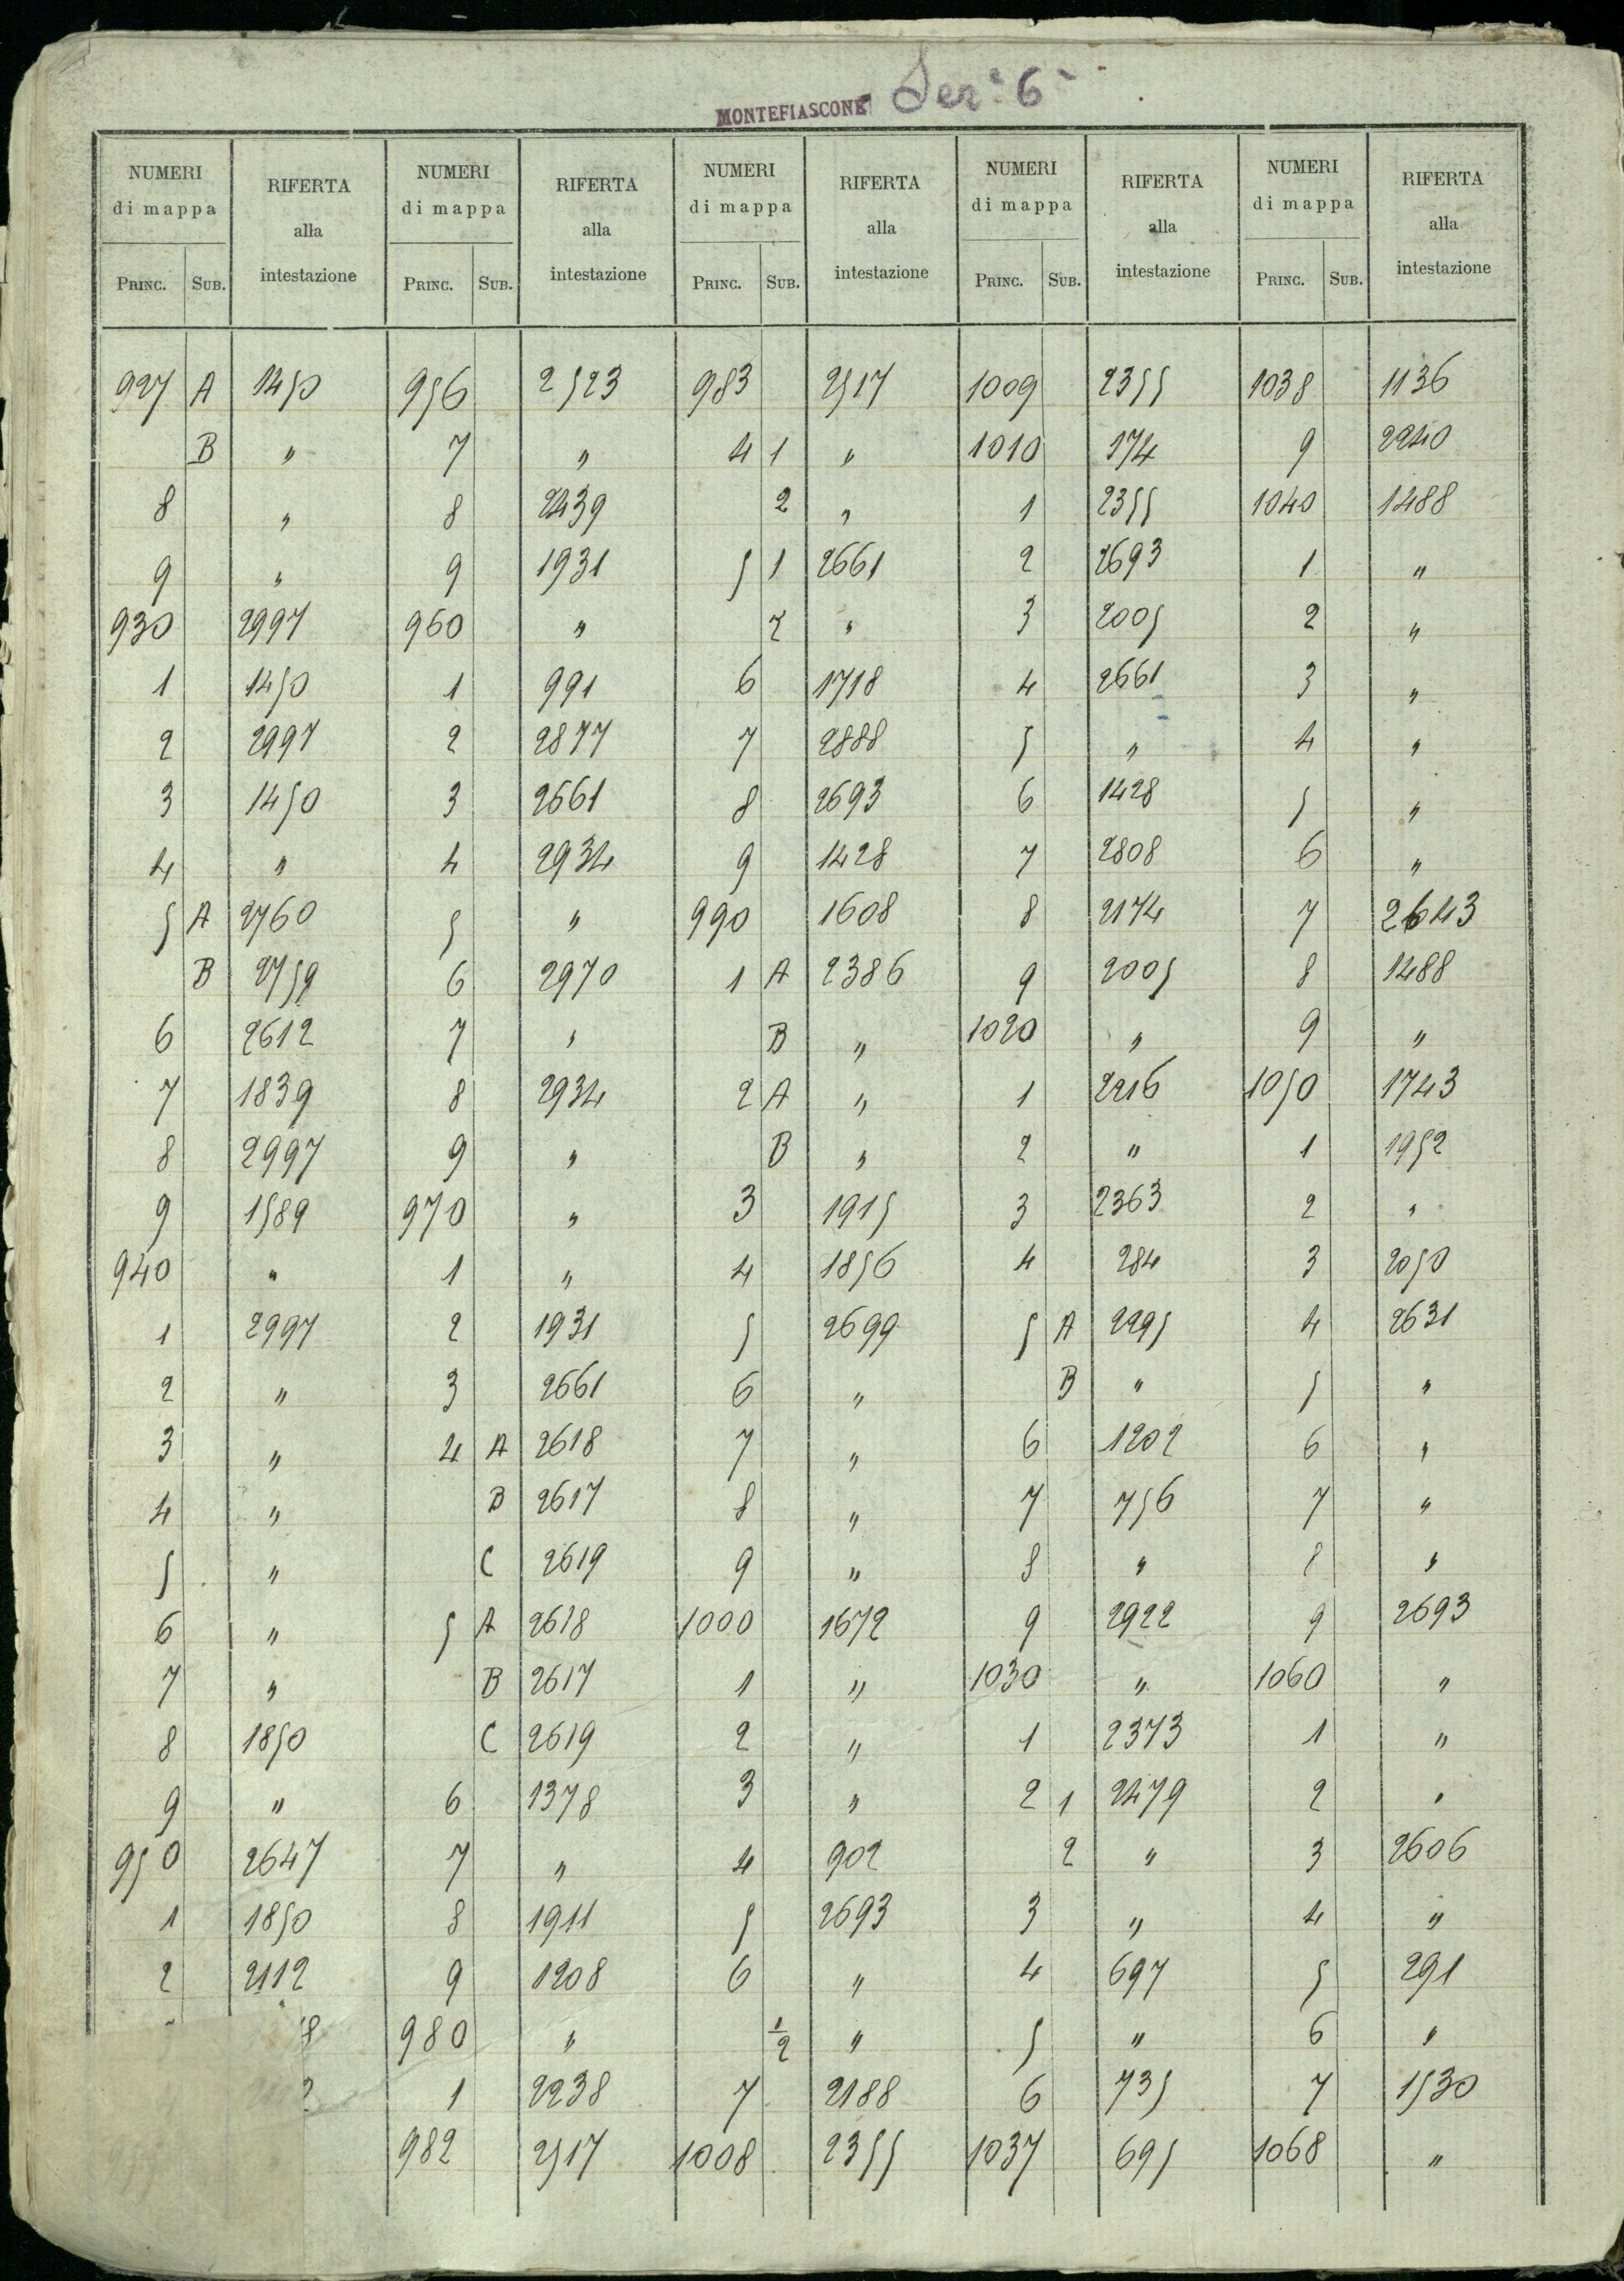 MONTEFIASCONE Sez.ª 6ª
NUMERI di mappa RIFERTA alla intestazione NUMERI di mappa RIFERTA alla intestazione NUMERI di mappa RIFERTA alla intestazione NUMERI di mappa RIFERTA alla intestazione NUMERI di mappa RIFERTA alla intestazione
PRINC. SUB. PRINC. SUB. PRINC. SUB. PRINC. SUB. PRINC. SUB.
927 A 1450 956 2523 983 2517 1009 2355 1038 1136
B " 7 " 4 1 " 1010 174 9 2240
8 " 8 2439 2 " 1 2355 1040 1488
9 " 9 1931 5 1 2661 2 2693 1 "
930 2997 960 " 2 " 3 2005 2 "
1 1450 1 991 6 1718 4 2661 3 "
2 2997 2 2877 7 2888 5 " 4 "
3 1450 3 2661 8 2693 6 1428 5 "
4 " 4 2934 9 1428 7 2808 6 "
5 A 2760 5 " 990 1608 8 2174 7 2643
B 2759 6 2970 1 A 2386 9 2005 8 1488
6 2612 7 " B " 1020 " 9 "
7 1839 8 2934 2 A " 1 2216 1050 1743
8 2997 9 " B " 2 " 1 1952
9 1589 970 " 3 1915 3 2363 2 "
940 " 1 " 4 1856 4 284 3 2050
1 2997 2 1931 5 2699 5 A 2295 4 2631
2 " 3 2661 6 " B " 5 "
3 " 4 A 2618 7 " 6 1202 6 "
4 " B 2617 8 " 7 756 7 "
5 " C 2619 9 " 8 " 8 "
6 " 5 A 2618 1000 1672 9 2922 9 2693
7 " B 2617 1 " 1030 " 1060 "
8 1850 C 2619 2 " 1 2373 1 "
9 " 6 1378 3 " 2 1 2479 2 "
950 2647 7 " 4 902 2 " 3 2606
1 1850 8 1911 5 2693 3 " 4 "
2 2112 9 1208 6 " 4 697 5 291
980 " 1/2 " 5 " 6 "
1 2238 7 2188 6 735 7 1530
982 2517 1008 2355 1037 695 1068 "